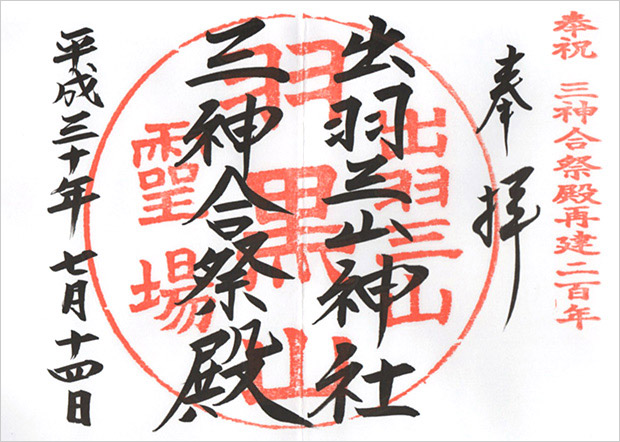 奉祝 三神合祭殿再建二百年
奉拝
出羽三山神社
三神合祭殿
平成三十年 七月十四日
出羽三山
羽黒山
霊場